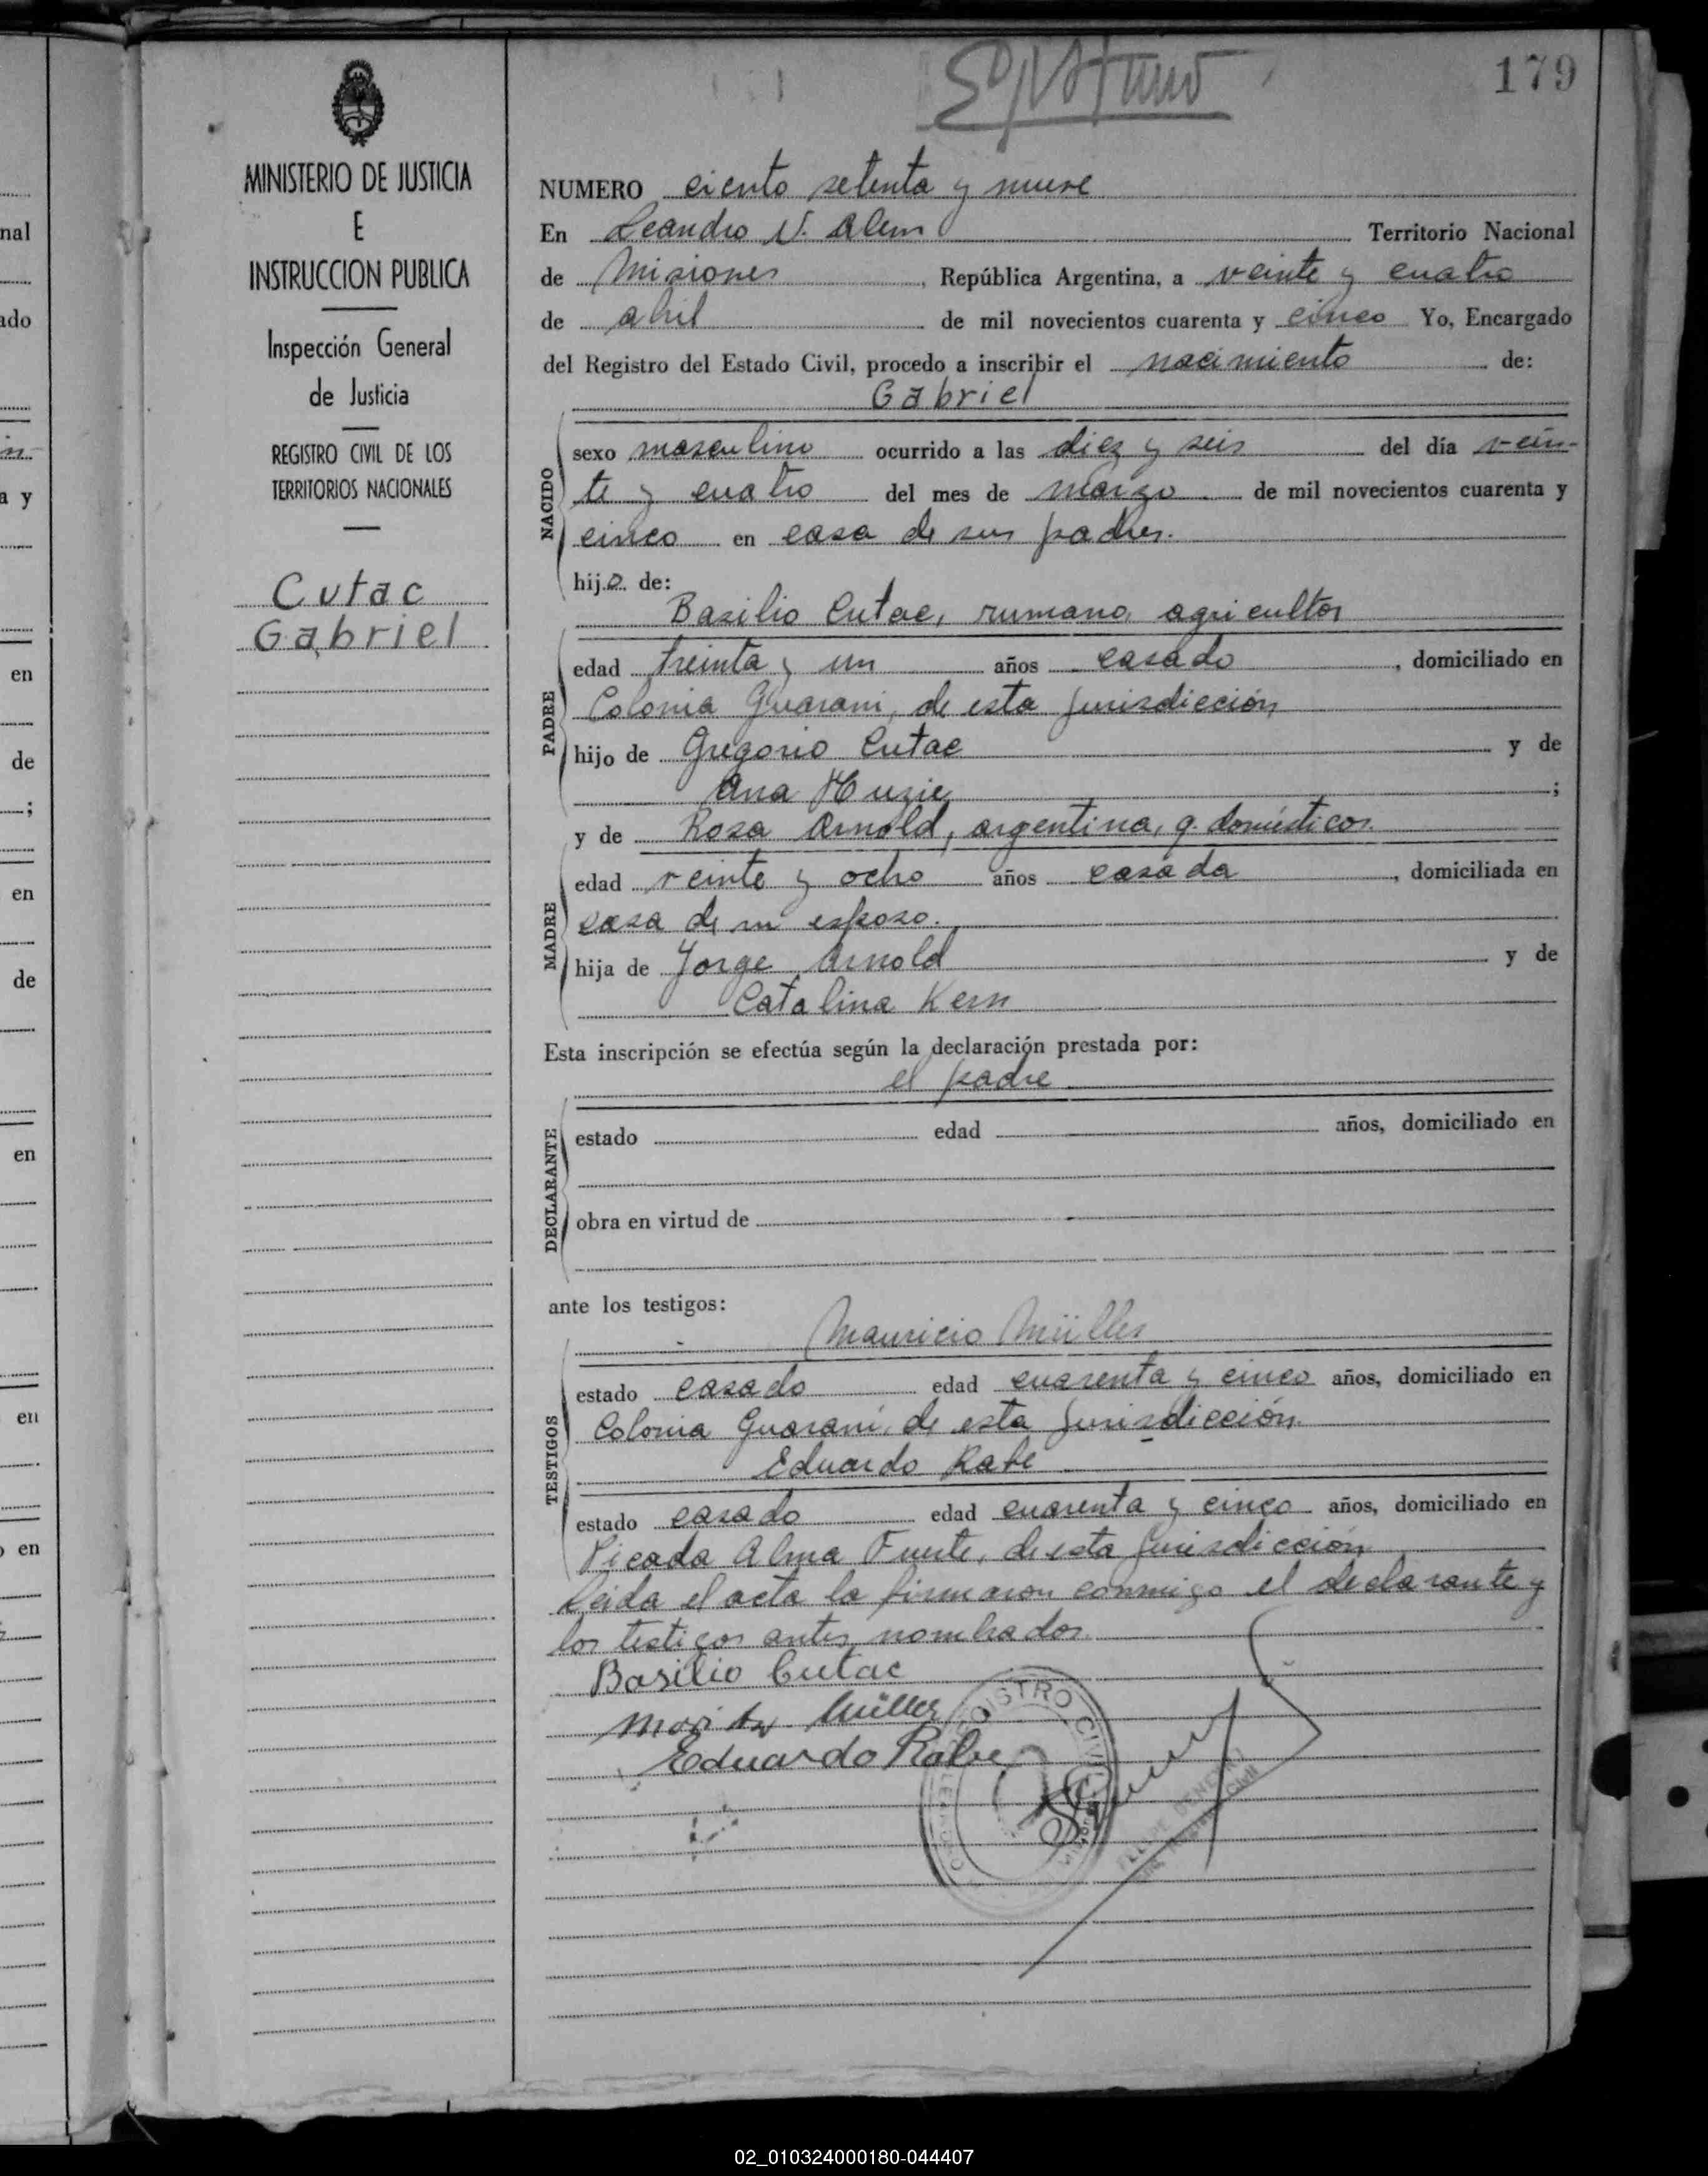 179
MINISTERIO DE JUSTICIA
E
INSTRUCCION PUBLICA
Inspección General
de Justicia
REGISTRO CIVIL DE LOS
TERRITORIOS NACIONALES
Cutac
Gabriel
NUMERO ciento setenta y nueve
En Leandro N. Alem Territorio Nacional
de Misiones, República Argentina, a veinte y cuatro
de abril de mil novecientos cuarenta y cinco Yo, Encargado
del Registro del Estado Civil, procedo a inscribir el nacimiento de:
Gabriel
NACIDO
sexo masculino ocurrido a las diez y seis del día vein-
te y cuatro del mes de marzo de mil novecientos cuarenta y
cinco en casa de sus padres.
hijo de:
Basilio Cutac, rumano, agricultor
PADRE
edad treinta y un años casado, domiciliado en
Colonia Guarani, de esta jurisdicción
hijo de Gregorio Cutac y de
Ana ;
y de Rosa Arnold, argentina, q. domésticos.
MADRE
edad veinte y ocho años casada, domiciliada en
casa de su esposo.
hija de Jorge Arnold y de
Catalina Kern
Esta inscripción se efectúa según la declaración prestada por:
el padre
DECLARANTE
estado edad años, domiciliado en
obra en virtud de
ante los testigos:
Mauricio Müller
TESTIGOS
estado casado edad cuarenta y cinco años, domiciliado en
Colonia Guaraní, de esta jurisdicción.
Eduardo Rabe
estado casado edad cuarenta y cinco años, domiciliado en
Picada Alma Fuerte, de esta jurisdicción
Leida el acta la firmaron conmigo el declarante y
los testigos antes nombrados.
Basilio Cutac
Moritz Müller
Eduardo Rabe
REGISTRO CIVIL
nal
ado
in
a y
en
de
;
en
de
en
en
en
02_010324000180-044407